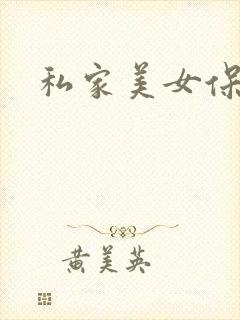 私家美女保
黄美英